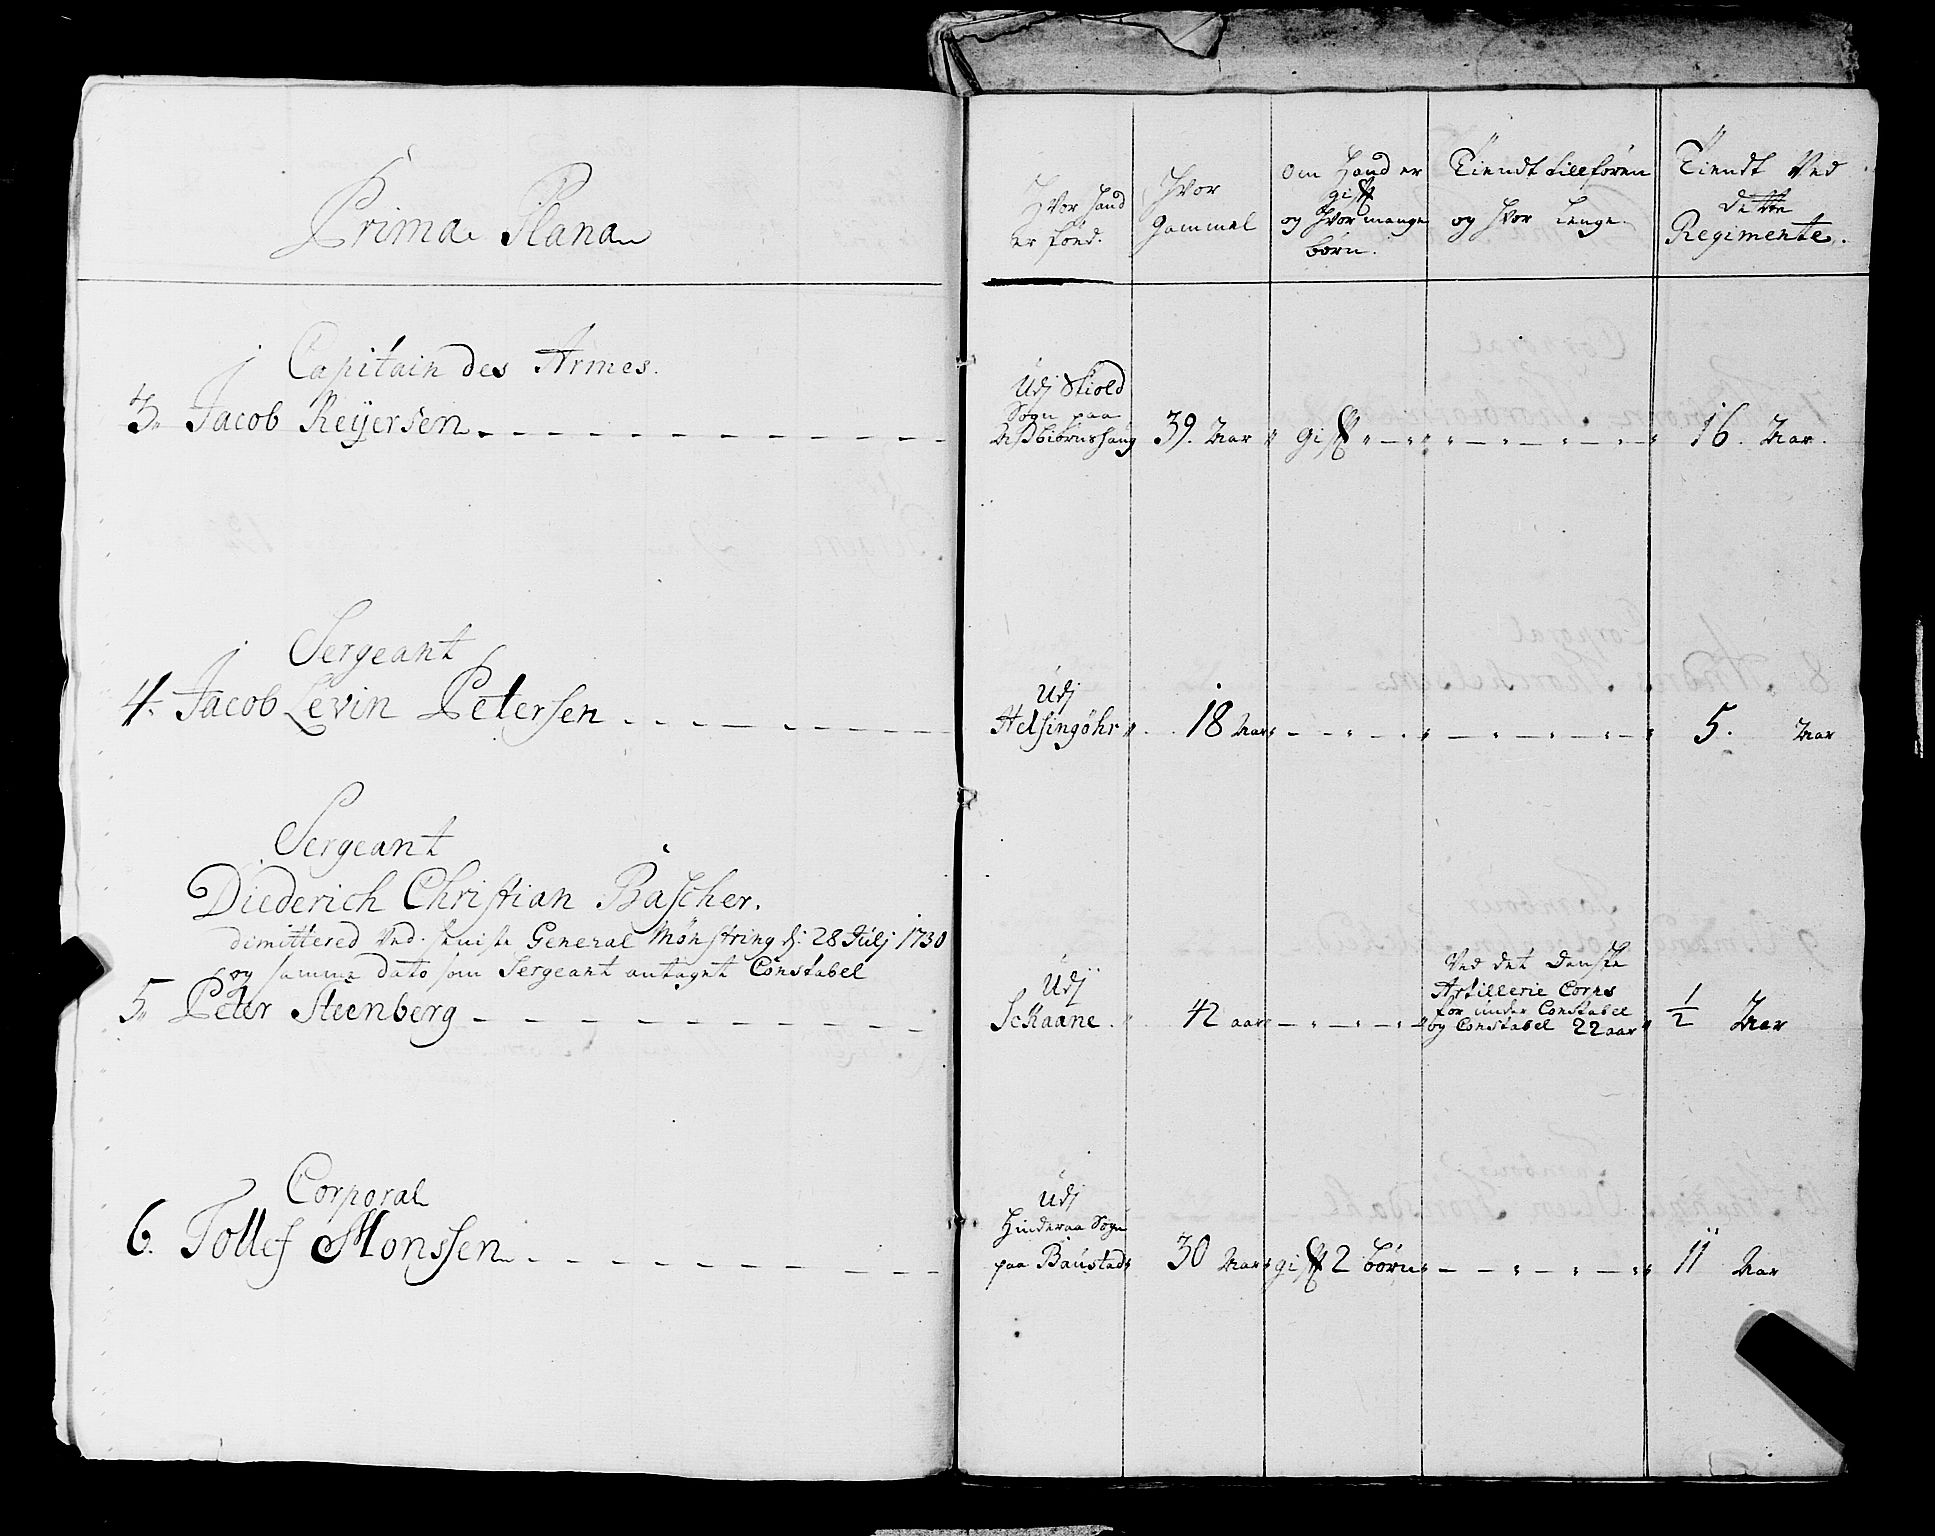 Prima Plana
Hvor hand
er föed.
Hvor
Gammel
Om Hand er
gift
og Hvor mange
börn.
Tiendt tillforen
og Hvor Lenge
Tiendt Ved
dette
Regimente.
Capitain des Armes.
3. Jacob Reijersen.
Udj Skiold
Sogn paa
39. Aar
gift
16. Aar.
Sergeant
4. Jacob Levin Petersen
Udj
Helsingöhr
18 Aar
5. Aar
Sergeant
Diederich Christian Bascher.
dimittered Ved General Mönstring d: 28 Julj 1730
og samme dato som Sergeant antaget Constabel
5. Peter Steenberg
Udj
Schaane.
42 aar
Ved det Danske
Artillerie Corps
for under Constabel
og Constabel 22 aar
1/2 Aar
Corporal
6. Tollef Monssen
Udj
Hinderaa Sogn
paa Baustad
30 Aar
gift 2 börn
11 Aar